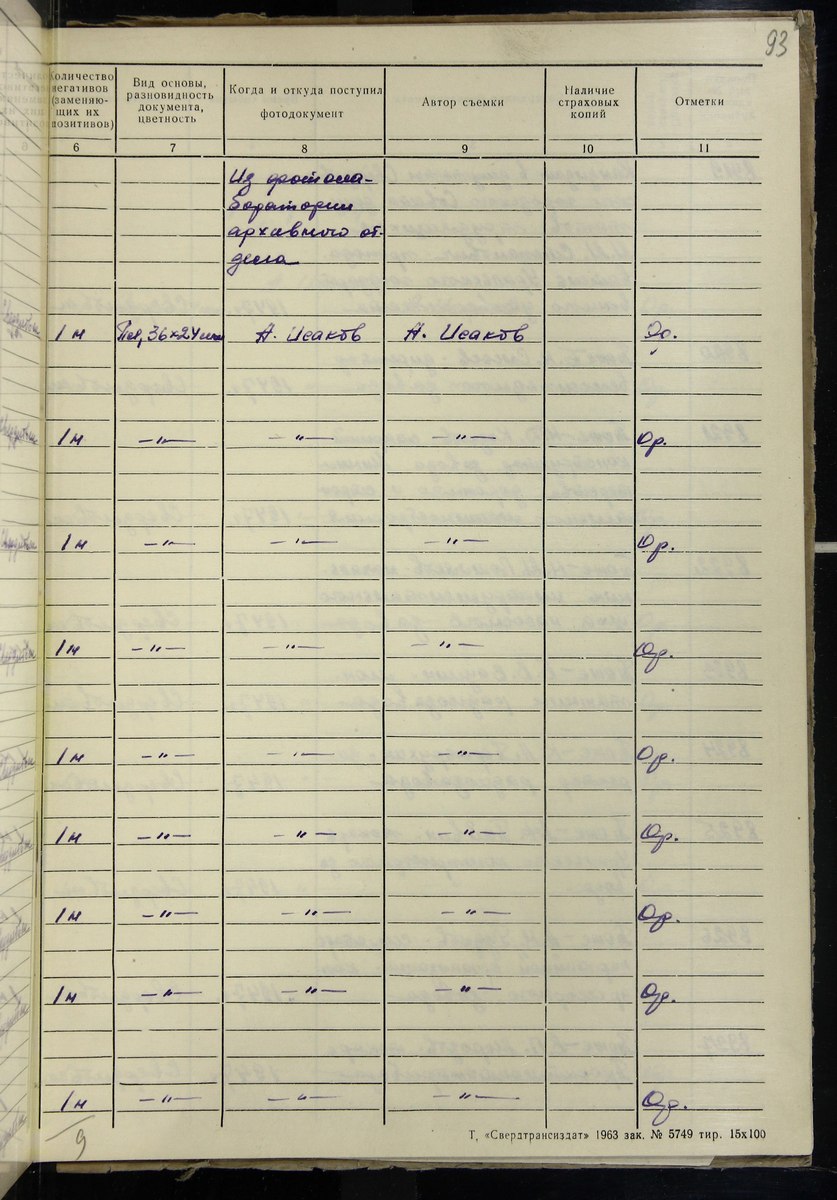 93
Количество негативов (заменяющих их позитивов)
Вид основы, разновидность документа, цветность
Когда и откуда поступил фотодокумент
Автор съемки
Наличие страховых копий
Отметки
6 7 8 9 10 11
Из фотола-
боратории
архивного от-
дела
1 н А. Исаков А. Исаков
1 н —"— —"— —"— Ор.
1 н —"— —"— —"— Ор.
1 н —"— —"— —"— Ор.
1 н —"— —"— —"— Ор.
1 н —"— —"— —"— Ор.
1 н —"— —"— —"— Ор.
1 н —"— —"— —"— Ор.
1 н —"— —"— —"— Ор.
9
Т, «Свердтрансиздат» 1963 зак. № 5749 тир. 15х100